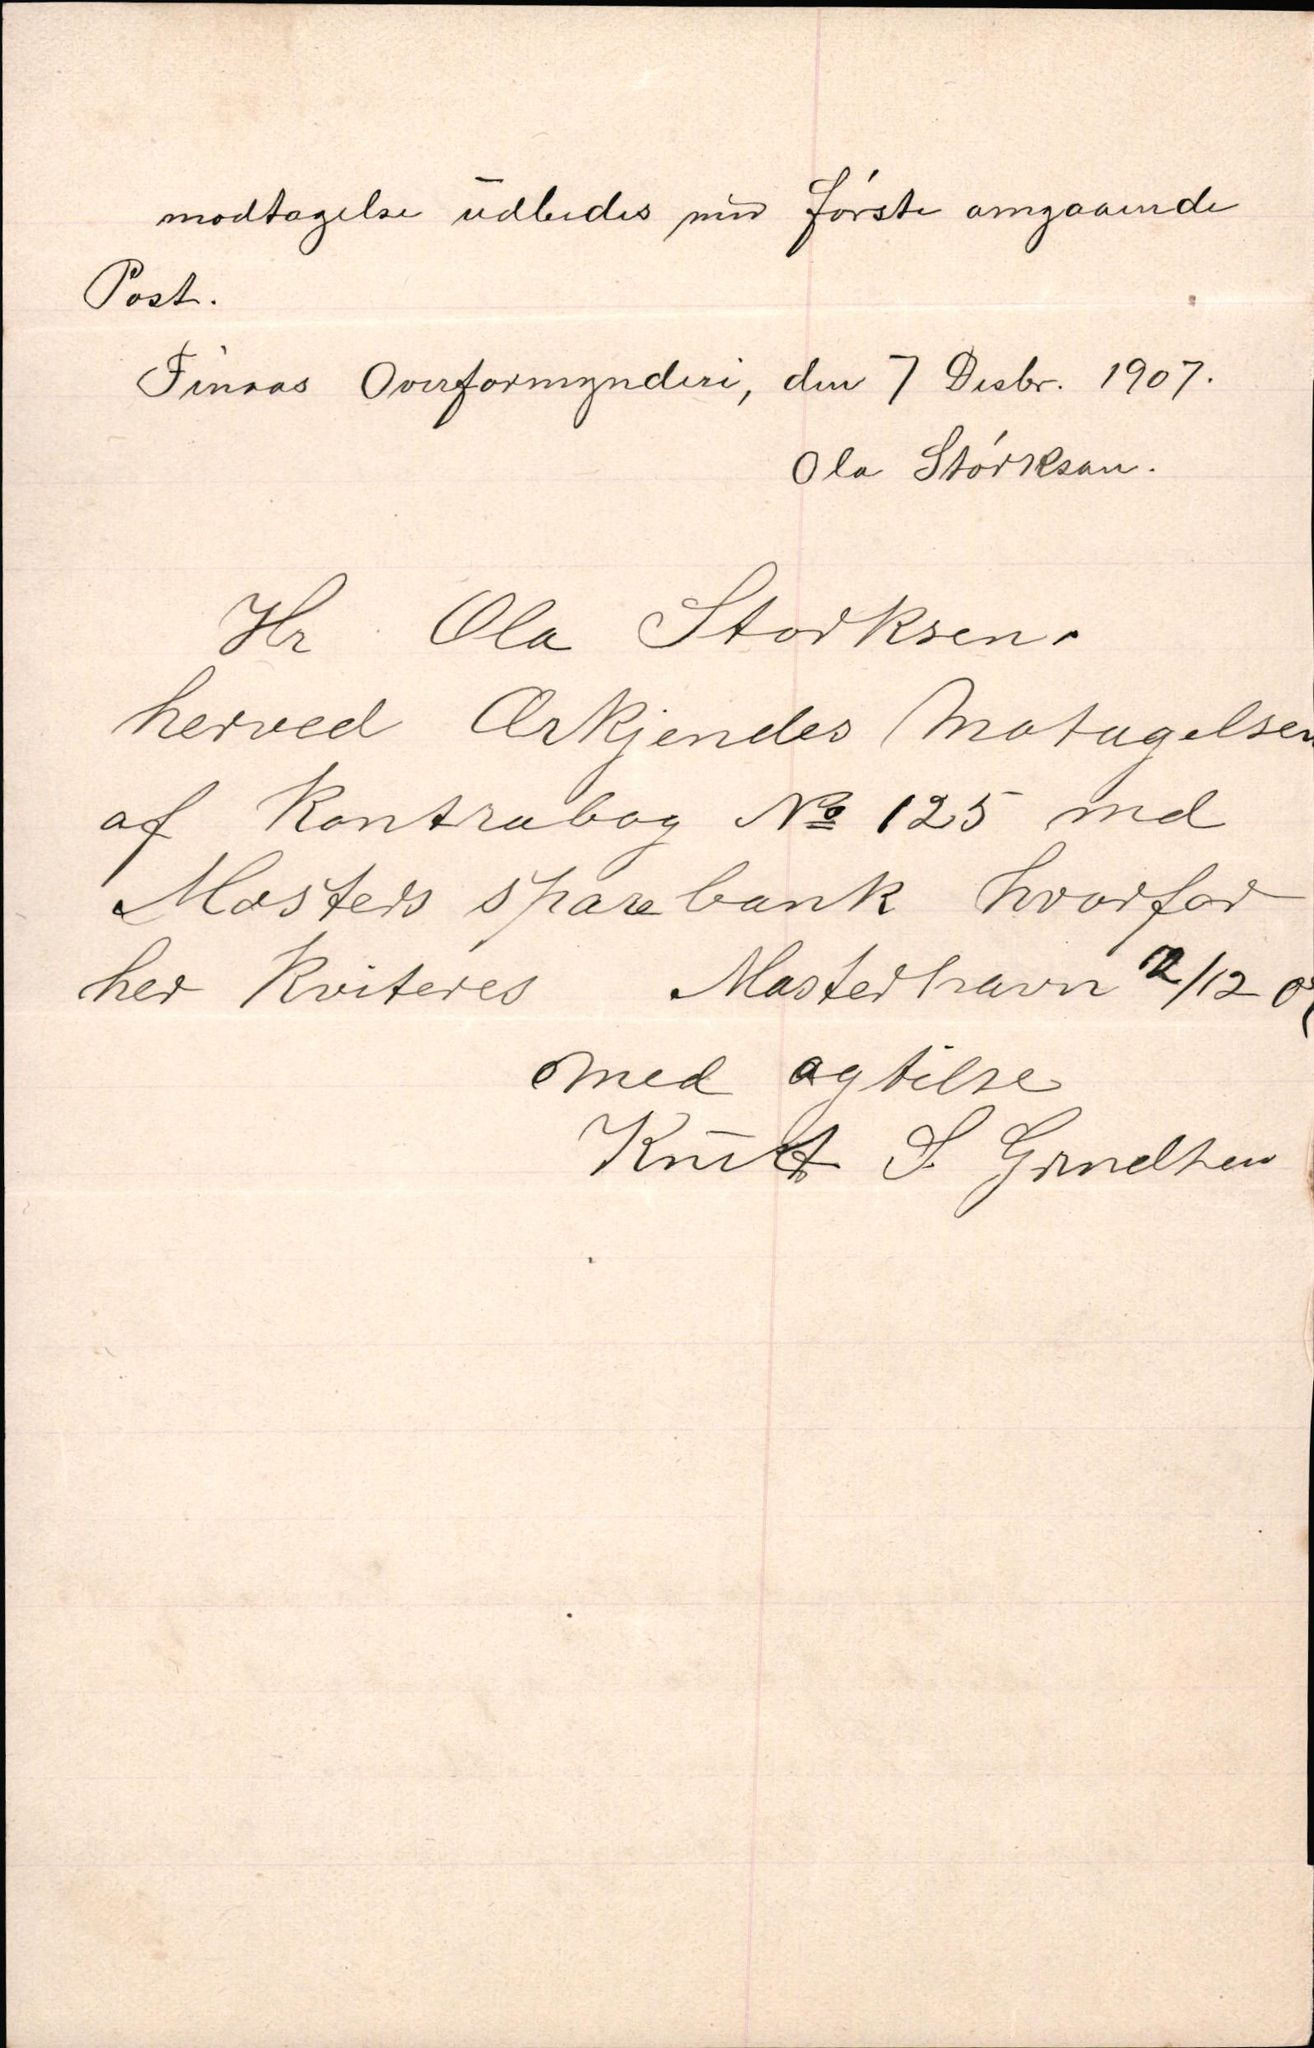 modtagelse udbedes med første omgaaende
Post.
Finaas Overformynderi, den 7 Desbr. 1907.
Ola Størksen.
Hr Ola Storksen.
herved Ærkjendes Motagelsen
af Kontrabog No 125 med
Mosters sparebank hvorfor
her Kviteres Mosterhavn 12/12 07
med agtilse
Knut S